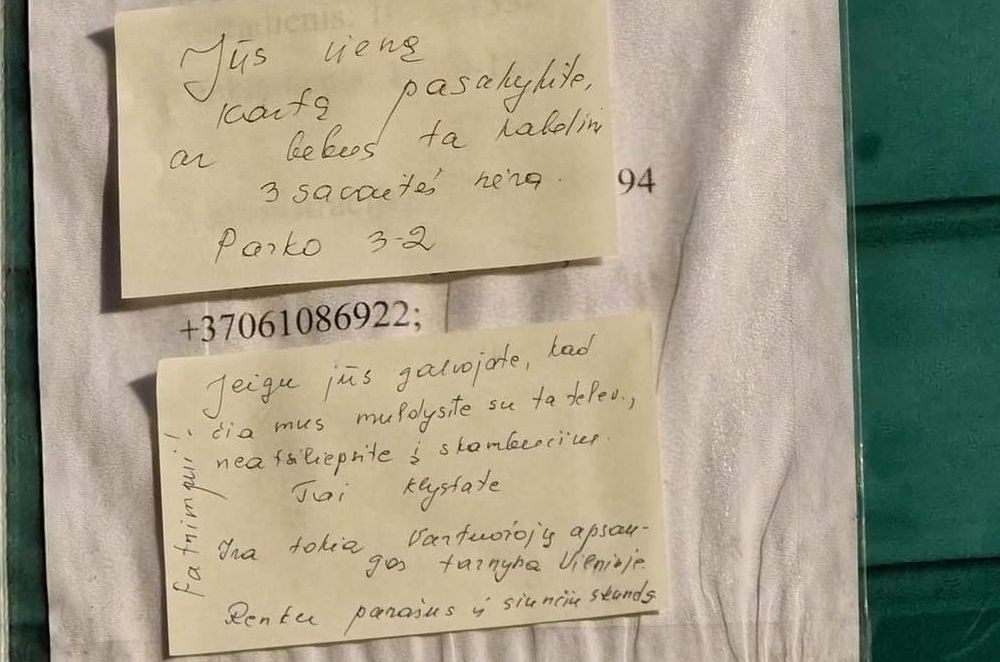 Jūs vieną
kartą pasakykite,
ar bebus ta kabelin
3 savaitės nėra.
Parko 3-2
94
+37061086922;
Jeigu jūs galvojate, kad
čia mus muldysite su ta telev.,
neatsiliepsite į skambučius.
Tai klystate
Yra tokia Vartuotojų apsau-
gos tarnyba Vilniuje.
Renku parašus ir siunčiu skundą